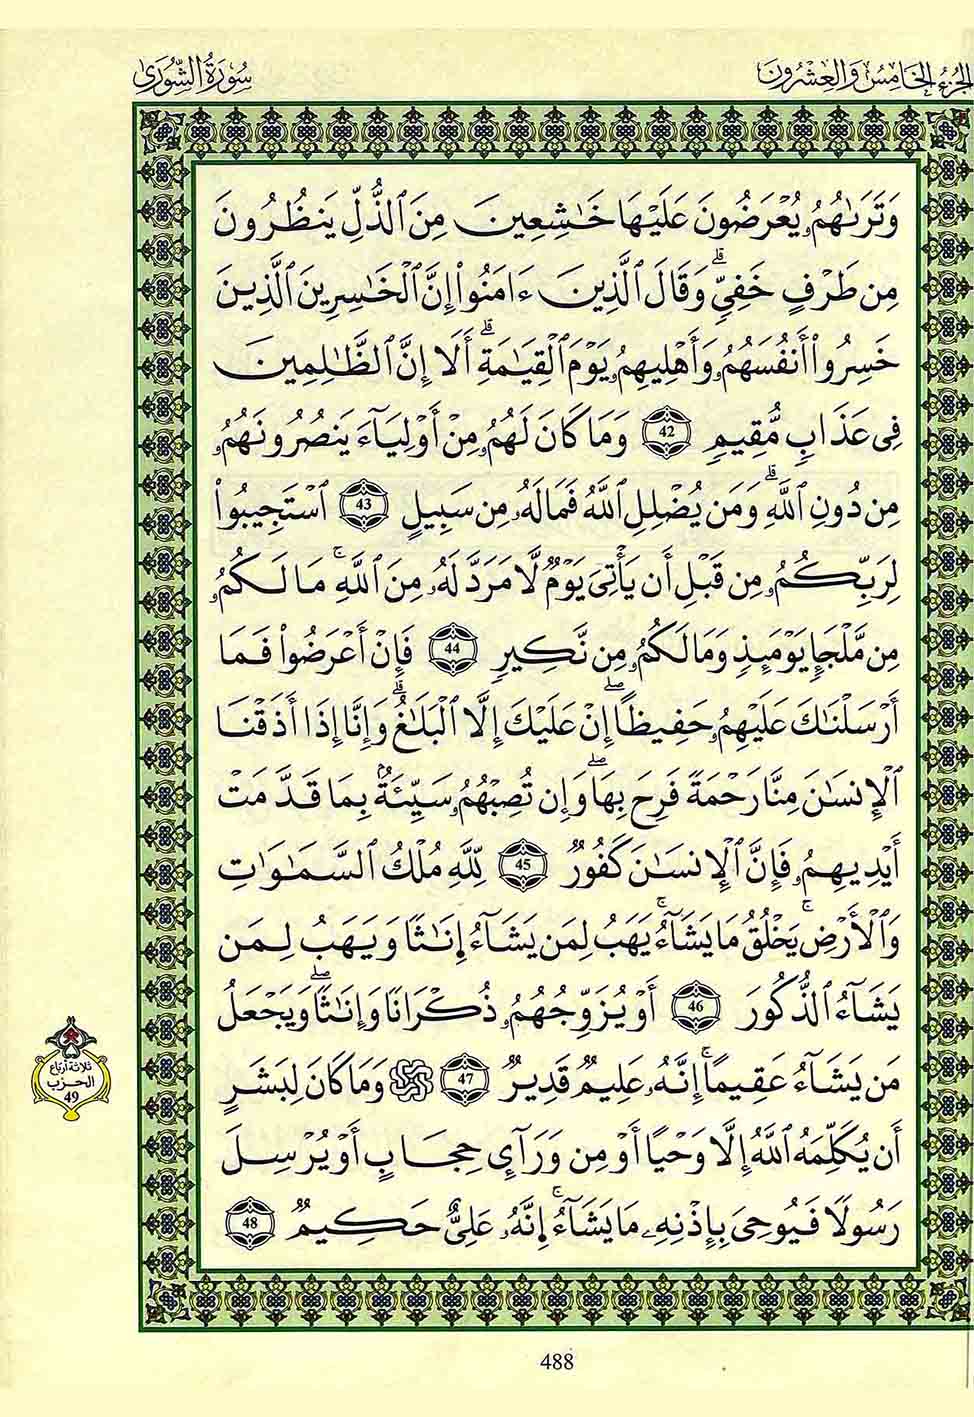 الجزء الخامس والعشرون
سورة الشورى
وَتَرَىٰهُمُۥ يُعْرَضُونَ عَلَيْهَا خَٰشِعِينَ مِنَ ٱلذُّلِّ يَنظُرُونَ
مِن طَرْفٍ خَفِيٍّۗ وَقَالَ ٱلَّذِينَ ءَامَنُوٓا۟ إِنَّ ٱلْخَٰسِرِينَ ٱلَّذِينَ
خَسِرُوٓا۟ أَنفُسَهُمُۥ وَأَهْلِيهِمُۥ يَوْمَ ٱلْقِيَٰمَةِۗ أَلَآ إِنَّ ٱلظَّٰلِمِينَ
فِى عَذَابٍ مُّقِيمٍ 42 وَمَا كَانَ لَهُمُۥ مِنْ أَوْلِيَآءَ يَنصُرُونَهُمُۥ
مِن دُونِ ٱللَّهِۗ وَمَن يُضْلِلِ ٱللَّهُ فَمَا لَهُۥ مِن سَبِيلٍ 43 ٱسْتَجِيبُوا۟
لِرَبِّكُمُۥ مِن قَبْلِ أَن يَأْتِىَ يَوْمٌ لَّا مَرَدَّ لَهُۥ مِنَ ٱللَّهِۚ مَا لَكُمُۥ
مِن مَّلْجَإٍ يَوْمَئِذٍ وَمَا لَكُمُۥ مِن نَّكِيرٍ 44 فَإِنْ أَعْرَضُوا۟ فَمَا
أَرْسَلْنَٰكَ عَلَيْهِمُۥ حَفِيظًاۖ إِنْ عَلَيْكَ إِلَّا ٱلْبَلَٰغُۗ وَإِنَّا إِذَا أَذَقْنَا
ٱلْإِنسَٰنَ مِنَّا رَحْمَةً فَرِحَ بِهَاۖ وَإِن تُصِبْهُمُۥ سَيِّئَةٌۢ بِمَا قَدَّمَتْ
أَيْدِيهِمُۥ فَإِنَّ ٱلْإِنسَٰنَ كَفُورٌ 45 لِّلَّهِ مُلْكُ ٱلسَّمَٰوَٰتِ
وَٱلْأَرْضِۚ يَخْلُقُ مَا يَشَآءُۚ يَهَبُ لِمَن يَشَآءُ إِنَٰثًا وَيَهَبُ لِمَن
يَشَآءُ ٱلذُّكُورَ 46 أَوْ يُزَوِّجُهُمُۥ ذُكْرَانًا وَإِنَٰثًاۖ وَيَجْعَلُ
مَن يَشَآءُ عَقِيمًاۚ إِنَّهُۥ عَلِيمٌ قَدِيرٌ 47 وَمَا كَانَ لِبَشَرٍ
أَن يُكَلِّمَهُ ٱللَّهُ إِلَّا وَحْيًا أَوْ مِن وَرَآئِ حِجَابٍ أَوْ يُرْسِلَ
رَسُولًا فَيُوحِىَ بِإِذْنِهِۦ مَا يَشَآءُۚ إِنَّهُۥ عَلِىٌّ حَكِيمٌ 48
ثلاثة أرباع
الحزب
49
488